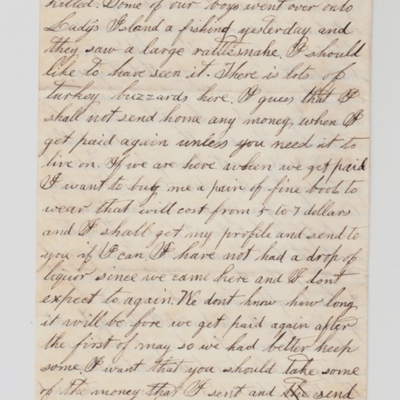 killed. Some of our boys went over onto
Ladys Island a fishing yesterday and
they saw a large rattlesnake. I should
like to have seen it. There is lots of
turkey buzzards here. I guess that I
shall not send home any money when I
get paid again unless you need it to
live on. If we are here when we get paid
I want to buy me a pair of fine boots to
wear that will cost from 5 to 7 dollars
and I shall get my profile and send to
you if I can. I have not had a drop of
liquor since we came here and I dont
expect to again. We dont know how long
it will be fore we get paid again after
the first of may so we had better keep
some. I want that you should take some
of the money that I sent and the send